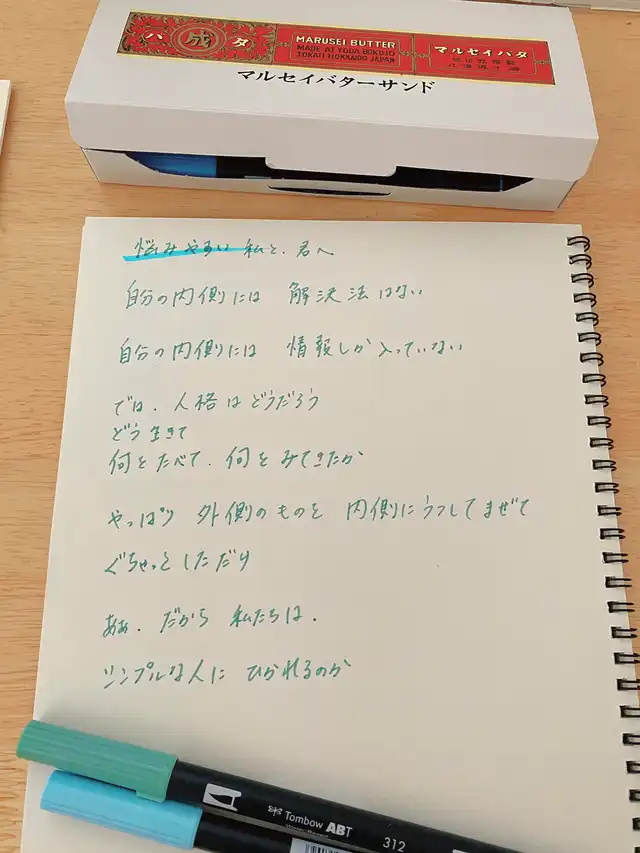 バタ
成
MARUSEI BUTTER
MADE AT YODA BOKUJO
TOKATI HOKKAIDO JAPAN
マルセイバタ
マルセイバターサンド
悩みやすい 私と、君へ
自分の内側には 解決法はない
自分の内側には 情報しか入っていない
では、人格はどうだろう
どう生きて
何をたべて、何をみてきたか
やっぱり 外側のものを 内側にうつしてまぜて
ぐちゃっとしただけ
ああ、だから 私たちは、
シンプルな人に ひかれるのか
Tombow ABT
312